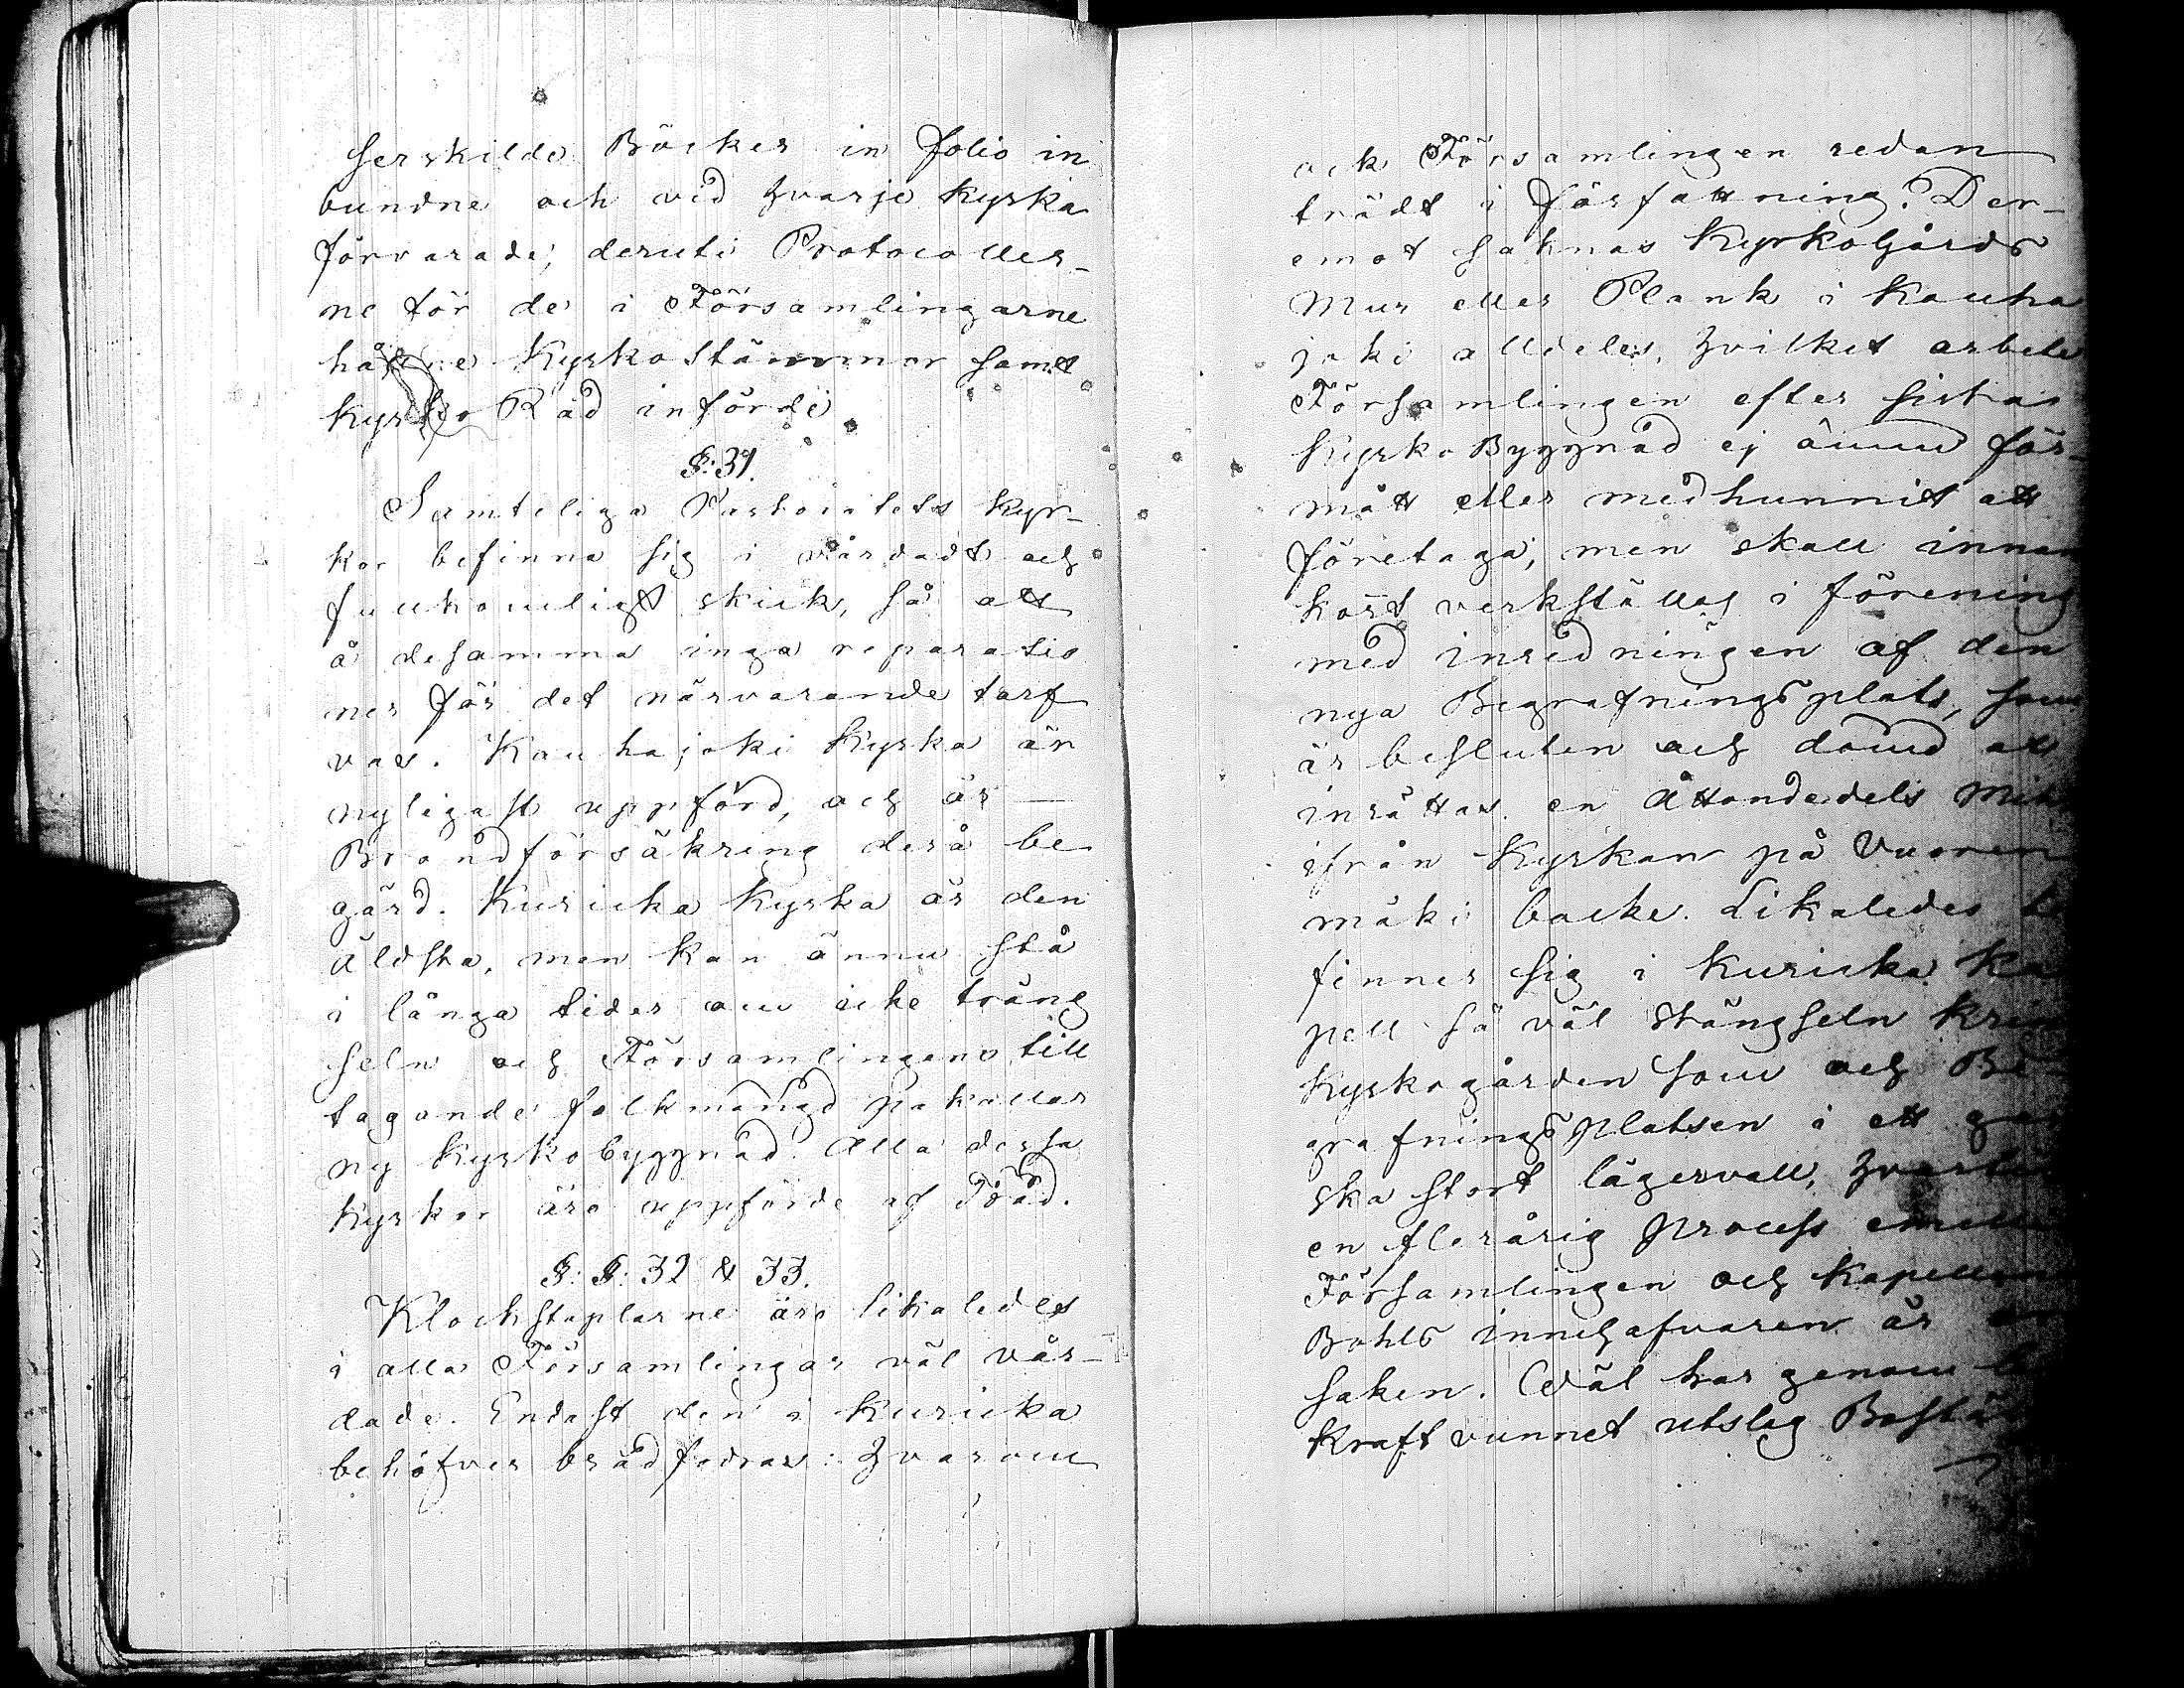 serskilde Böcker in folio in
bundne och vid hvarje kyrka
förvarade; deruti Protocoller-
ne för de i Församlingarne
hållne Kyrkostämmor samt
kyrko Råd införde
§: 31.
Samteliga Pastoratets kyr-
kor befinna sig i vårdadt och
fullkomligt skick, så att
å desamma inga reparatio
ner för det närvarande tarf
vas. Kauhajoki Kyrka är
nyligast uppförd, och är —
Brandförsäkring derå be
gärd. Kuricka Kyrka är den
äldsta, men kan ännu stå
i långa tider om icke träng
seln och Församlingens till
tagande folkmängd påkallar
ny kyrkobyggnad. Alla dessa
Kyrkor äro uppförde af Träd.
§: §: 32 & 33.
Klockstaplarne äro likaledes
i alla Församlingar väl vår-
dade. Endast den i Kuricka
behöfver brädfodras: hvarom
ock Församlingen redan
trädt i författning. Der-
emot saknas Kyrkogårds
Mur eller Plank i Kauha
joki alldeles, hvilket arbete
Församlingen efter sista
Kyrko Byggnad ej ännu för-
mått eller medhunnit att
företaga; men skall innan
kort verkställas i förening
med inredningen af den
nya Begrafningsplats, som
är besluten och dömd att
inrättas en Åttondedels Mil
ifrån Kyrkan på Vuoren
mäki backe. Likaledes be
finner sig i Kuricka Ka
pell så väl stängseln kring
Kyrkogården som och Be
grafningsplatsen i ett gan
ska stort lägervall, hvartill
en flerårig process emellan
Församlingen och Kapellans
Bohls innehafvaren är
saken. Wäl har genom
kraft vunnet utslag